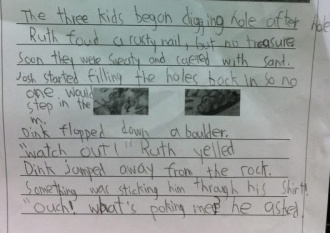 The three kids began digging hole after hole
Ruth foud a rusty nail, but no treasure
Soon they were sweaty and covered with sand.
Josh started filling the holes back in so no
one would
step in the
m.
Dink flopped down a boulder.
"Watch out!" Ruth yelled
Dink jumped away from the rock.
Something was sticking him through his shirt.
"Ouch! what's poking me? he asked.